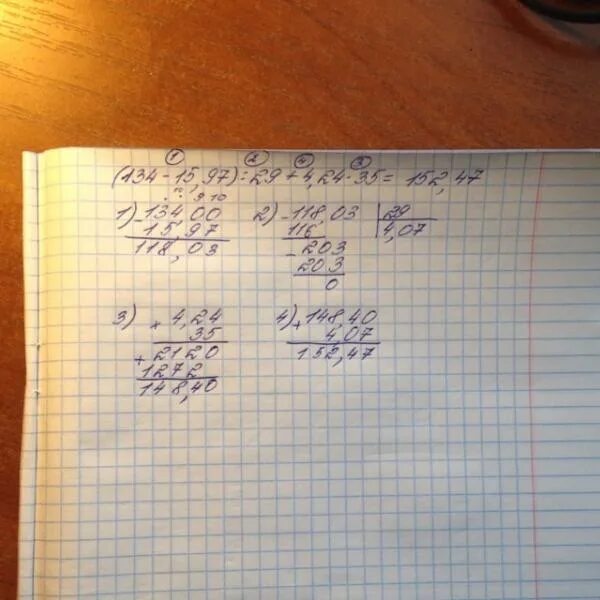 ① ② ④ ③
(134 - 15,97) : 29 + 4,24 · 35 = 152,47
9 10
1) - 134,00 2) - 118,03 | 29
15,97 116 4,07
118,03 - 203
203
0
3) × 4,24 4) + 148,40
35 4,07
+ 2120 152,47
1272
148,40